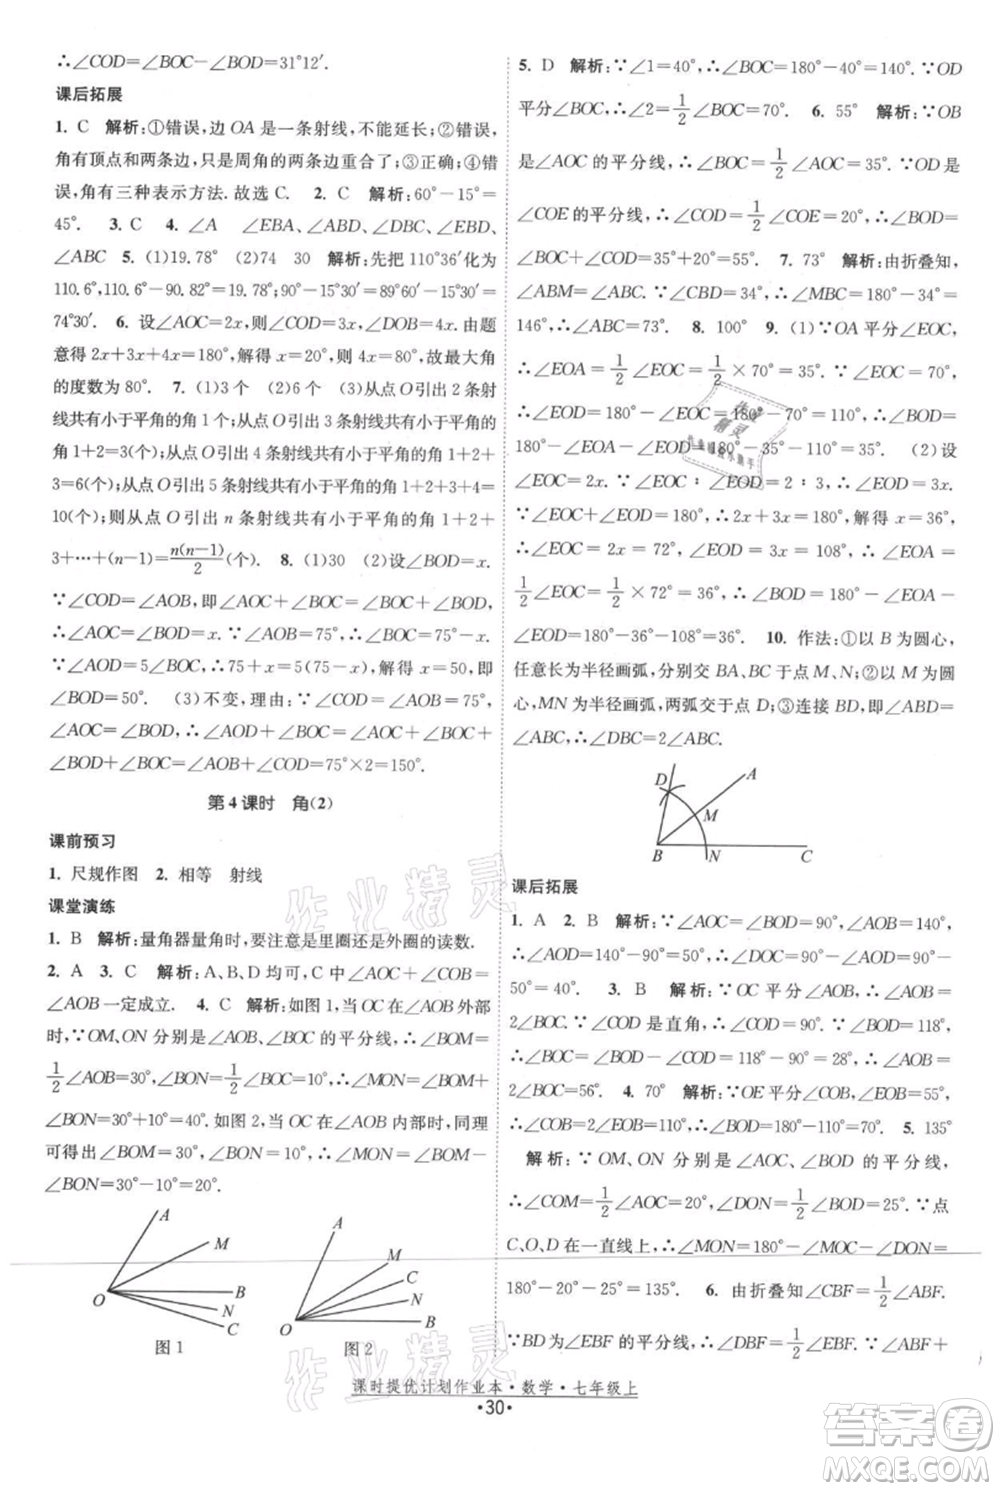 ∴∠COD=∠BOC-∠BOD=31°12′.
课后拓展
1. C 解析:①错误,边 OA 是一条射线,不能延长;②错误,
角有顶点和两条边,只是周角的两条边重合了;③正确;④错
误,角有三种表示方法.故选 C. 2. C 解析:60°-15°=
45°. 3. C 4. ∠A ∠EBA, ∠ABD, ∠DBE, ∠EBC,
∠ABC 5. (1)19.78° (2)74 30 解析:先把 110°36′化为
110.6°,110.6°-90.48°=20.12°;90°-15°30′=
74°30′. 6. 设∠AOC=2x,则∠COD=3x,∠DOB=4x.由题
意得 2x+3x+4x=180°,解得 x=20°,则 4x=80°.故最大角
的度数为 80°. 7. (1)3 个 (2)6 个 (3)从点 O 引出 2 条射
线共有小于平角的角 1 个;从点 O 引出 3 条射线共有小于平角的角
1+2=3(个);从点 O 引出 4 条射线共有小于平角的角 1+2+
3=6(个);从点 O 引出 5 条射线共有小于平角的角 1+2+3+4=
10(个);则从点 O 引出 n 条射线共有小于平角的角 1+2+
3+…+(n-1)=n(n-1)/2(个). 8. (1)30 (2)设∠BOD=x.
∵∠COD=∠AOB,即∠AOC+∠BOC+∠BOD=∠AOB,
∴∠AOC=∠BOD=x.∵∠AOB=75°,∴∠BOC=75°-x.
∵∠AOD=5∠BOC,∴75°+x=5(75°-x),解得 x=50°,即
∠BOD=50°. (3)不变,理由:∵∠COD=∠AOB=75°,
∠AOC=∠BOD,∴∠AOD+∠BOC=∠AOB+∠BOD+
∠BOC=∠AOB+∠AOC+∠BOC=∠AOB+∠COD=75°×2=150°.
第 4 课时 角(2)
课前预习
1. 尺规作图 2. 相等 射线
课堂演练
1. B 解析:量角器量角时,要注意是里圈还是外圈的读数.
2. A 3. C 解析:A、B、D 均可,C 中,∠AOC+∠COB=
∠AOB 一定成立. 4. C 解析:如图 1,当 OC 在∠AOB 外部
时,∵OM,ON 分别是∠AOB,∠BOC 的平分线,∴∠BOM=
1/2∠AOB=30°,∠BON=1/2∠BOC=10°,∴∠MON=∠BOM+
∠BON=30°+10°=40°.如图 2,当 OC 在∠AOB 内部时,∵
OM,ON 分别是∠AOB,∠BOC 的平分线,∴∠BOM=
1/2∠AOB=30°,∠BON=1/2∠BOC=10°,∴∠MON=∠BOM-
∠BON=30°-10°=20°.
A
M
O
B
N
C
图 1
A
M
C
N
O
B
图 2
5. D 解析:∵∠1=40°,∴∠BOC=180°-40°=140°.∵OD
平分∠BOC,∴∠2=1/2∠BOC=70°. 6. 55° 解析:∵OB
是∠AOC 的平分线,∴∠BOC=1/2∠AOC=35°.∵OD 是
∠COE 的平分线,∴∠COD=1/2∠COE=20°,∴∠BOD=
∠BOC+∠COD=35°+20°=55°. 7. 73° 解析:由折叠知,
∠ABM=∠CBM.∵∠CBD=34°,∴∠MBC=180°-34°=
146°,∴∠ABC=73°. 8. 100° 9. (1)∵OA 平分∠EOC,
∴∠EOA=1/2∠EOC=1/2×70°=35°.∵∠EOC=70°,
∴∠BOC+∠EOD=180°-∠EOC=180°-70°=110°,∴∠BOD=
180°-∠EOA-∠EOD=180°-35°-110°=35°. (2)设
∠EOC=2x,∵∠EOC∶∠EOD=2∶3,∴∠EOD=3x.
∵∠EOD+∠EOC=180°,∴2x+3x=180°,解得 x=36°,
∴∠EOC=2x=72°,∠EOD=3x=108°,∴∠EOA=
1/2∠EOC=1/2×72°=36°,∴∠BOD=180°-∠EOA-
∠EOD=180°-36°-108°=36°. 10. 作法:①以 B 为圆心,
任意长为半径画弧,分别交 BA、BC 于点 M、N;②以 M 为圆
心,MN 为半径画弧,两弧交于点 D;③连接 BD,即∠ABD=
∠ABC,∴∠DBC=2∠ABC.
D
A
M
B
N
C
课后拓展
1. A 2. B 解析:∵∠AOC=∠BOD=90°,∠AOB=140°,
∴∠AOD=∠AOB-∠BOD=50°,∴∠COD=90°-
50°=40°. 3. B 解析:∵OC 平分∠AOB,∴∠AOB=
2∠BOC.∵∠COD 是直角,∴∠COD=90°.∵∠BOD=118°,
∴∠BOC=∠BOD-∠COD=118°-90°=28°,∴∠AOB=
2∠BOC=56°. 4. 70° 解析:∵OE 平分∠COB,∠EOB=
55°,∴∠COB=110°,∴∠BOD=180°-∠COB=70°. 5. 135°
解析:∵OM、ON 分别是∠AOC、∠BOD 的平分线,
∴∠COM=1/2∠AOC=20°,∠DON=1/2∠BOD=25°.∵点
C、O、D 在一直线上,∴∠MON=180°-∠MOC-∠DON=
180°-20°-25°=135°. 6. 由折叠知∠CBF=1/2∠ABF.
∵BD 为∠EBF 的平分线,∴∠DBF=1/2∠EBF.∵∠ABF+
课时提优计划作业本·数学·七年级上
·30·
作业精灵
作业精灵
答案圈
MXQE.COM